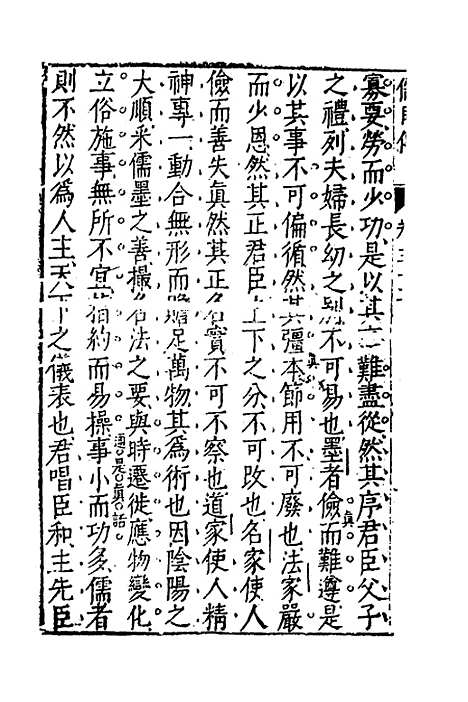 寡要勞而少功是以其事難盡從然其序君臣父子
之禮列夫婦長幼之別不可易也墨者儉而難遵是
以其事不可偏循然其彊本節用不可廢也法家嚴
而少恩然其正君臣上下之分不可改也名家使人
儉而善失真然其正名實不可不察也道家使人精
神專一動合無形而贍足萬物其為術也因陰陽之
大順采儒墨之善撮名法之要與時遷徙應物變化
立俗施事無所不宜指約而易操事小而功多儒者
通是真話
則不然以為人主天下之儀表也君唱臣和主先臣